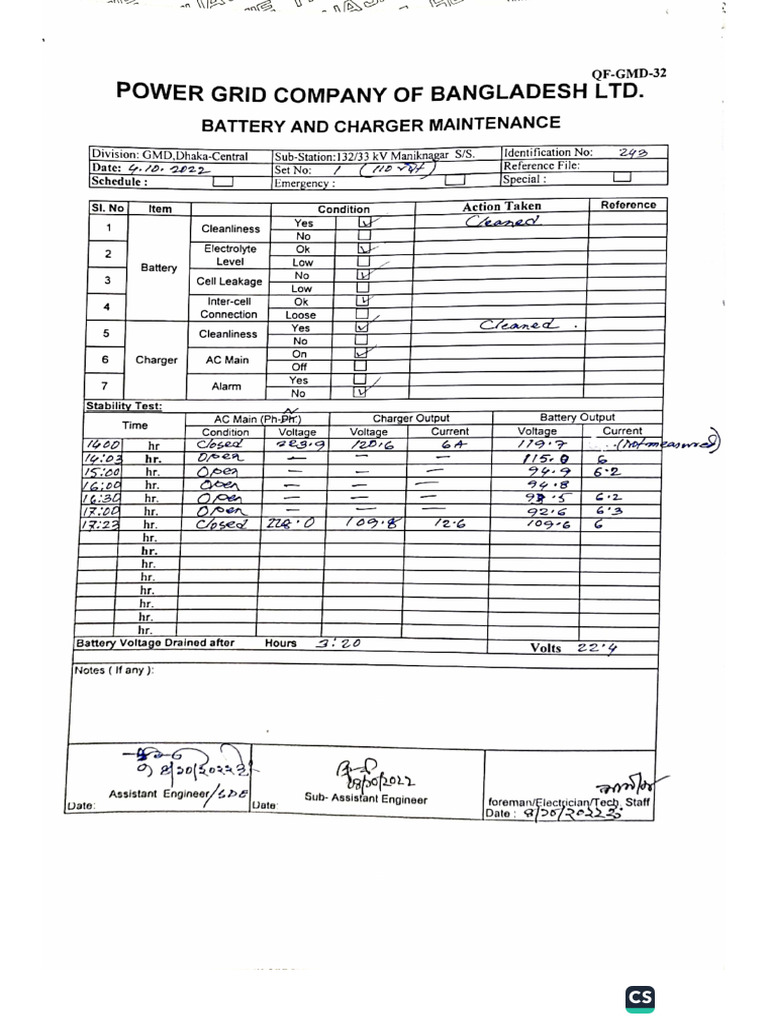 QF-GMD-32
POWER GRID COMPANY OF BANGLADESH LTD.
BATTERY AND CHARGER MAINTENANCE
Division: GMD,Dhaka-Central Sub-Station:132/33 kV Maniknagar S/S. Identification No: 243
Date: 4.10.2022 Set No: 1 (110 Reference File:
Schedule : Emergency : Special :
Sl. No Item Condition Action Taken Reference
1 Battery Cleanliness Yes ✓ Cleaned
No
2 Electrolyte Level Ok ✓
Low
3 Cell Leakage No ✓
Low
4 Inter-cell Connection Ok ✓
Loose
5 Charger Cleanliness Yes ✓ Cleaned.
No
6 AC Main On ✓
Off
7 Alarm Yes
No ✓
Stability Test:
Time AC Main (Ph-Ph.) N Charger Output Battery Output
Condition Voltage Voltage Current Voltage Current
1400 hr Closed 223.9 120.6 6A 119.7 ....(not measured)
14:03 hr. Open — — — 115.0 6
15:00 hr. Open — — — 94.9 6.2
16:00 hr. Open — — — 94.8
16:30 hr. Open — — — 6.2
17:00 hr. Open — — — 92.6 6.3
17:23 hr. Closed 228.0 109.8 12.6 109.6 6
hr.
hr.
hr.
hr.
hr.
hr.
hr.
hr.
Battery Voltage Drained after Hours 3:20 Volts 22.4
Notes ( If any ):
Assistant Engineer/SDE
Date:
Sub- Assistant Engineer
Date:
foreman/Electrician/Tech. Staff
Date :
CS